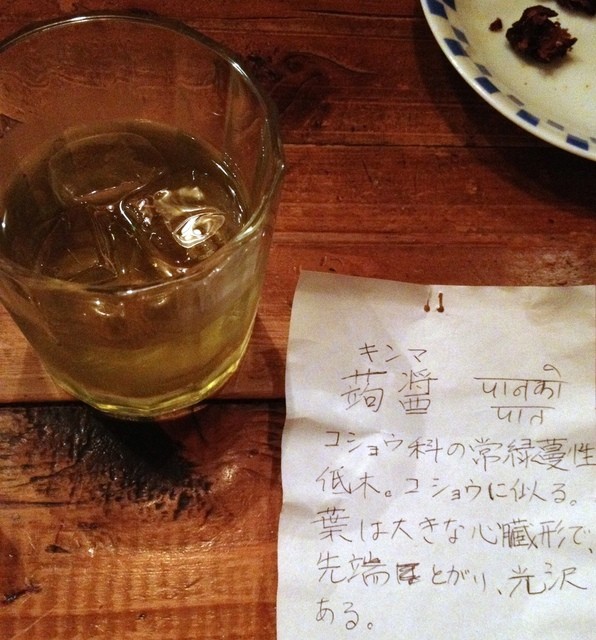 キンマ
蒟醤 पानको
पात
コショウ科の常緑蔓性
低木。コショウに似る。
葉は大きな心臓形で、
先端とがり、光沢
ある。